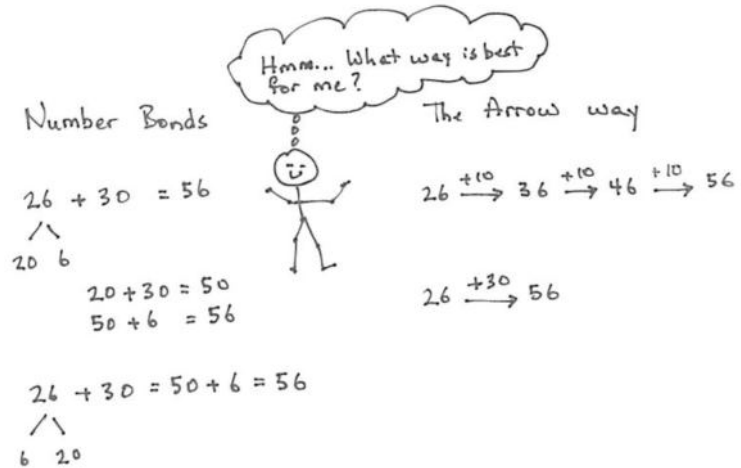 Hmmm... What way is best
for me?
Number Bonds
26 + 30 = 56
20 6
20 + 30 = 50
50 + 6 = 56
26 + 30 = 50 + 6 = 56
6 20
The Arrow way
+10 +10 +10
26 → 36 → 46 → 56
+30
26 → 56